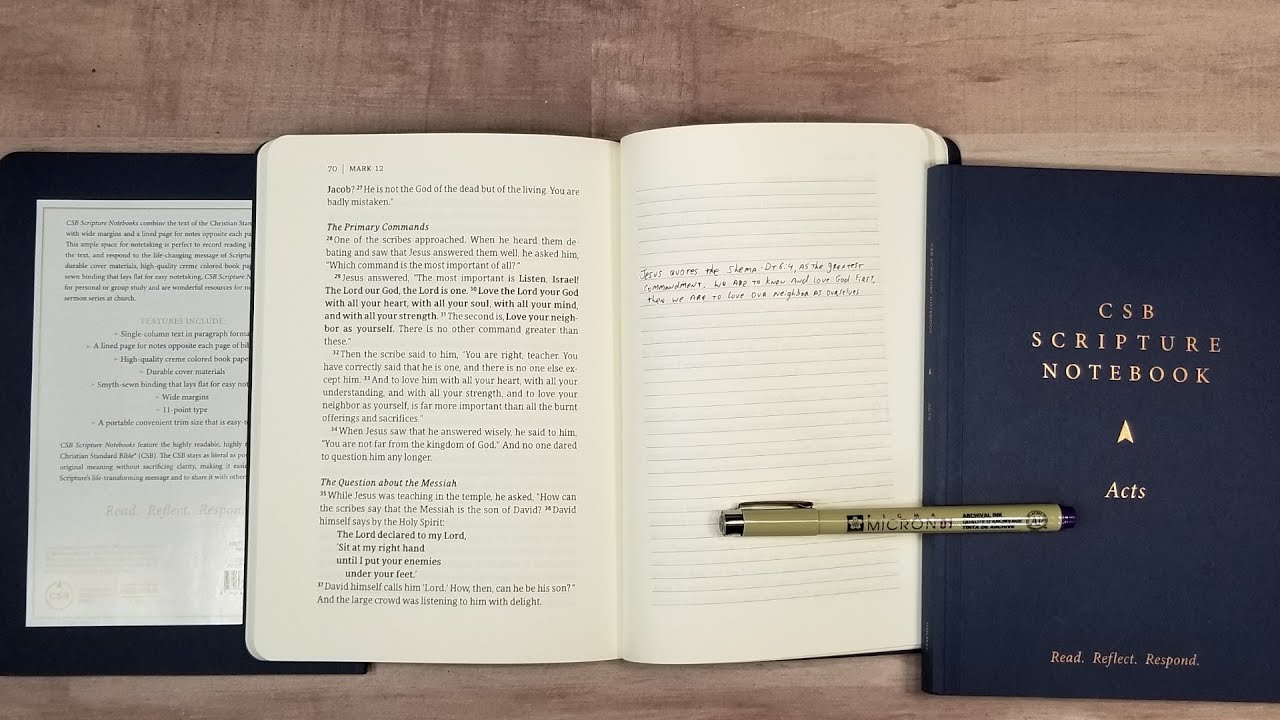 CSB Scripture Notebooks combine the text of the Christian Stan
with wide margins and a lined page for notes opposite each pag
This ample space for notetaking is perfect to record reading i
the text, and respond to the life-changing message of Scriptur
durable cover materials, high-quality creme colored book pap
sewn binding that lays flat for easy notetaking, CSB Scripture N
for personal or group study and are wonderful resources for no
sermon series at church.
FEATURES INCLUDE
Single-column text in paragraph forma
A lined page for notes opposite each page of bib
High-quality creme colored book pape
Durable cover materials
Smyth-sewn binding that lays flat for easy not
Wide margins
11-point type
A portable convenient trim size that is easy-t
CSB Scripture Notebooks feature the highly readable, highly
Christian Standard Bible® (CSB). The CSB stays as literal as po
original meaning without sacrificing clarity, making it easie
Scripture's life-transforming message and to share it with other
Read. Reflect. Respon
CSB
70 | MARK 12
Jacob? 27 He is not the God of the dead but of the living. You are
badly mistaken."
The Primary Commands
28 One of the scribes approached. When he heard them de-
bating and saw that Jesus answered them well, he asked him,
"Which command is the most important of all?"
29 Jesus answered, "The most important is Listen, Israel!
The Lord our God, the Lord is one. 30 Love the Lord your God
with all your heart, with all your soul, with all your mind,
and with all your strength. 31 The second is, Love your neigh-
bor as yourself. There is no other command greater than
these."
32 Then the scribe said to him, "You are right, teacher. You
have correctly said that he is one, and there is no one else ex-
cept him. 33 And to love him with all your heart, with all your
understanding, and with all your strength, and to love your
neighbor as yourself, is far more important than all the burnt
offerings and sacrifices."
34 When Jesus saw that he answered wisely, he said to him,
"You are not far from the kingdom of God." And no one dared
to question him any longer.
The Question about the Messiah
35 While Jesus was teaching in the temple, he asked, "How can
the scribes say that the Messiah is the son of David? 36 David
himself says by the Holy Spirit:
The Lord declared to my Lord,
'Sit at my right hand
until I put your enemies
under your feet.'
37 David himself calls him 'Lord.' How, then, can he be his son?"
And the large crowd was listening to him with delight.
Jesus quotes the Shema Dt 6:4, as the greatest
commandment. We are to know and love God first,
then we are to love our neighbor as ourselves
PIGMA
MICRON 01
ARCHIVAL INK
TINTA DE ARCHIVO
CSB
SCRIPTURE
NOTEBOOK
Acts
Read. Reflect. Respond.